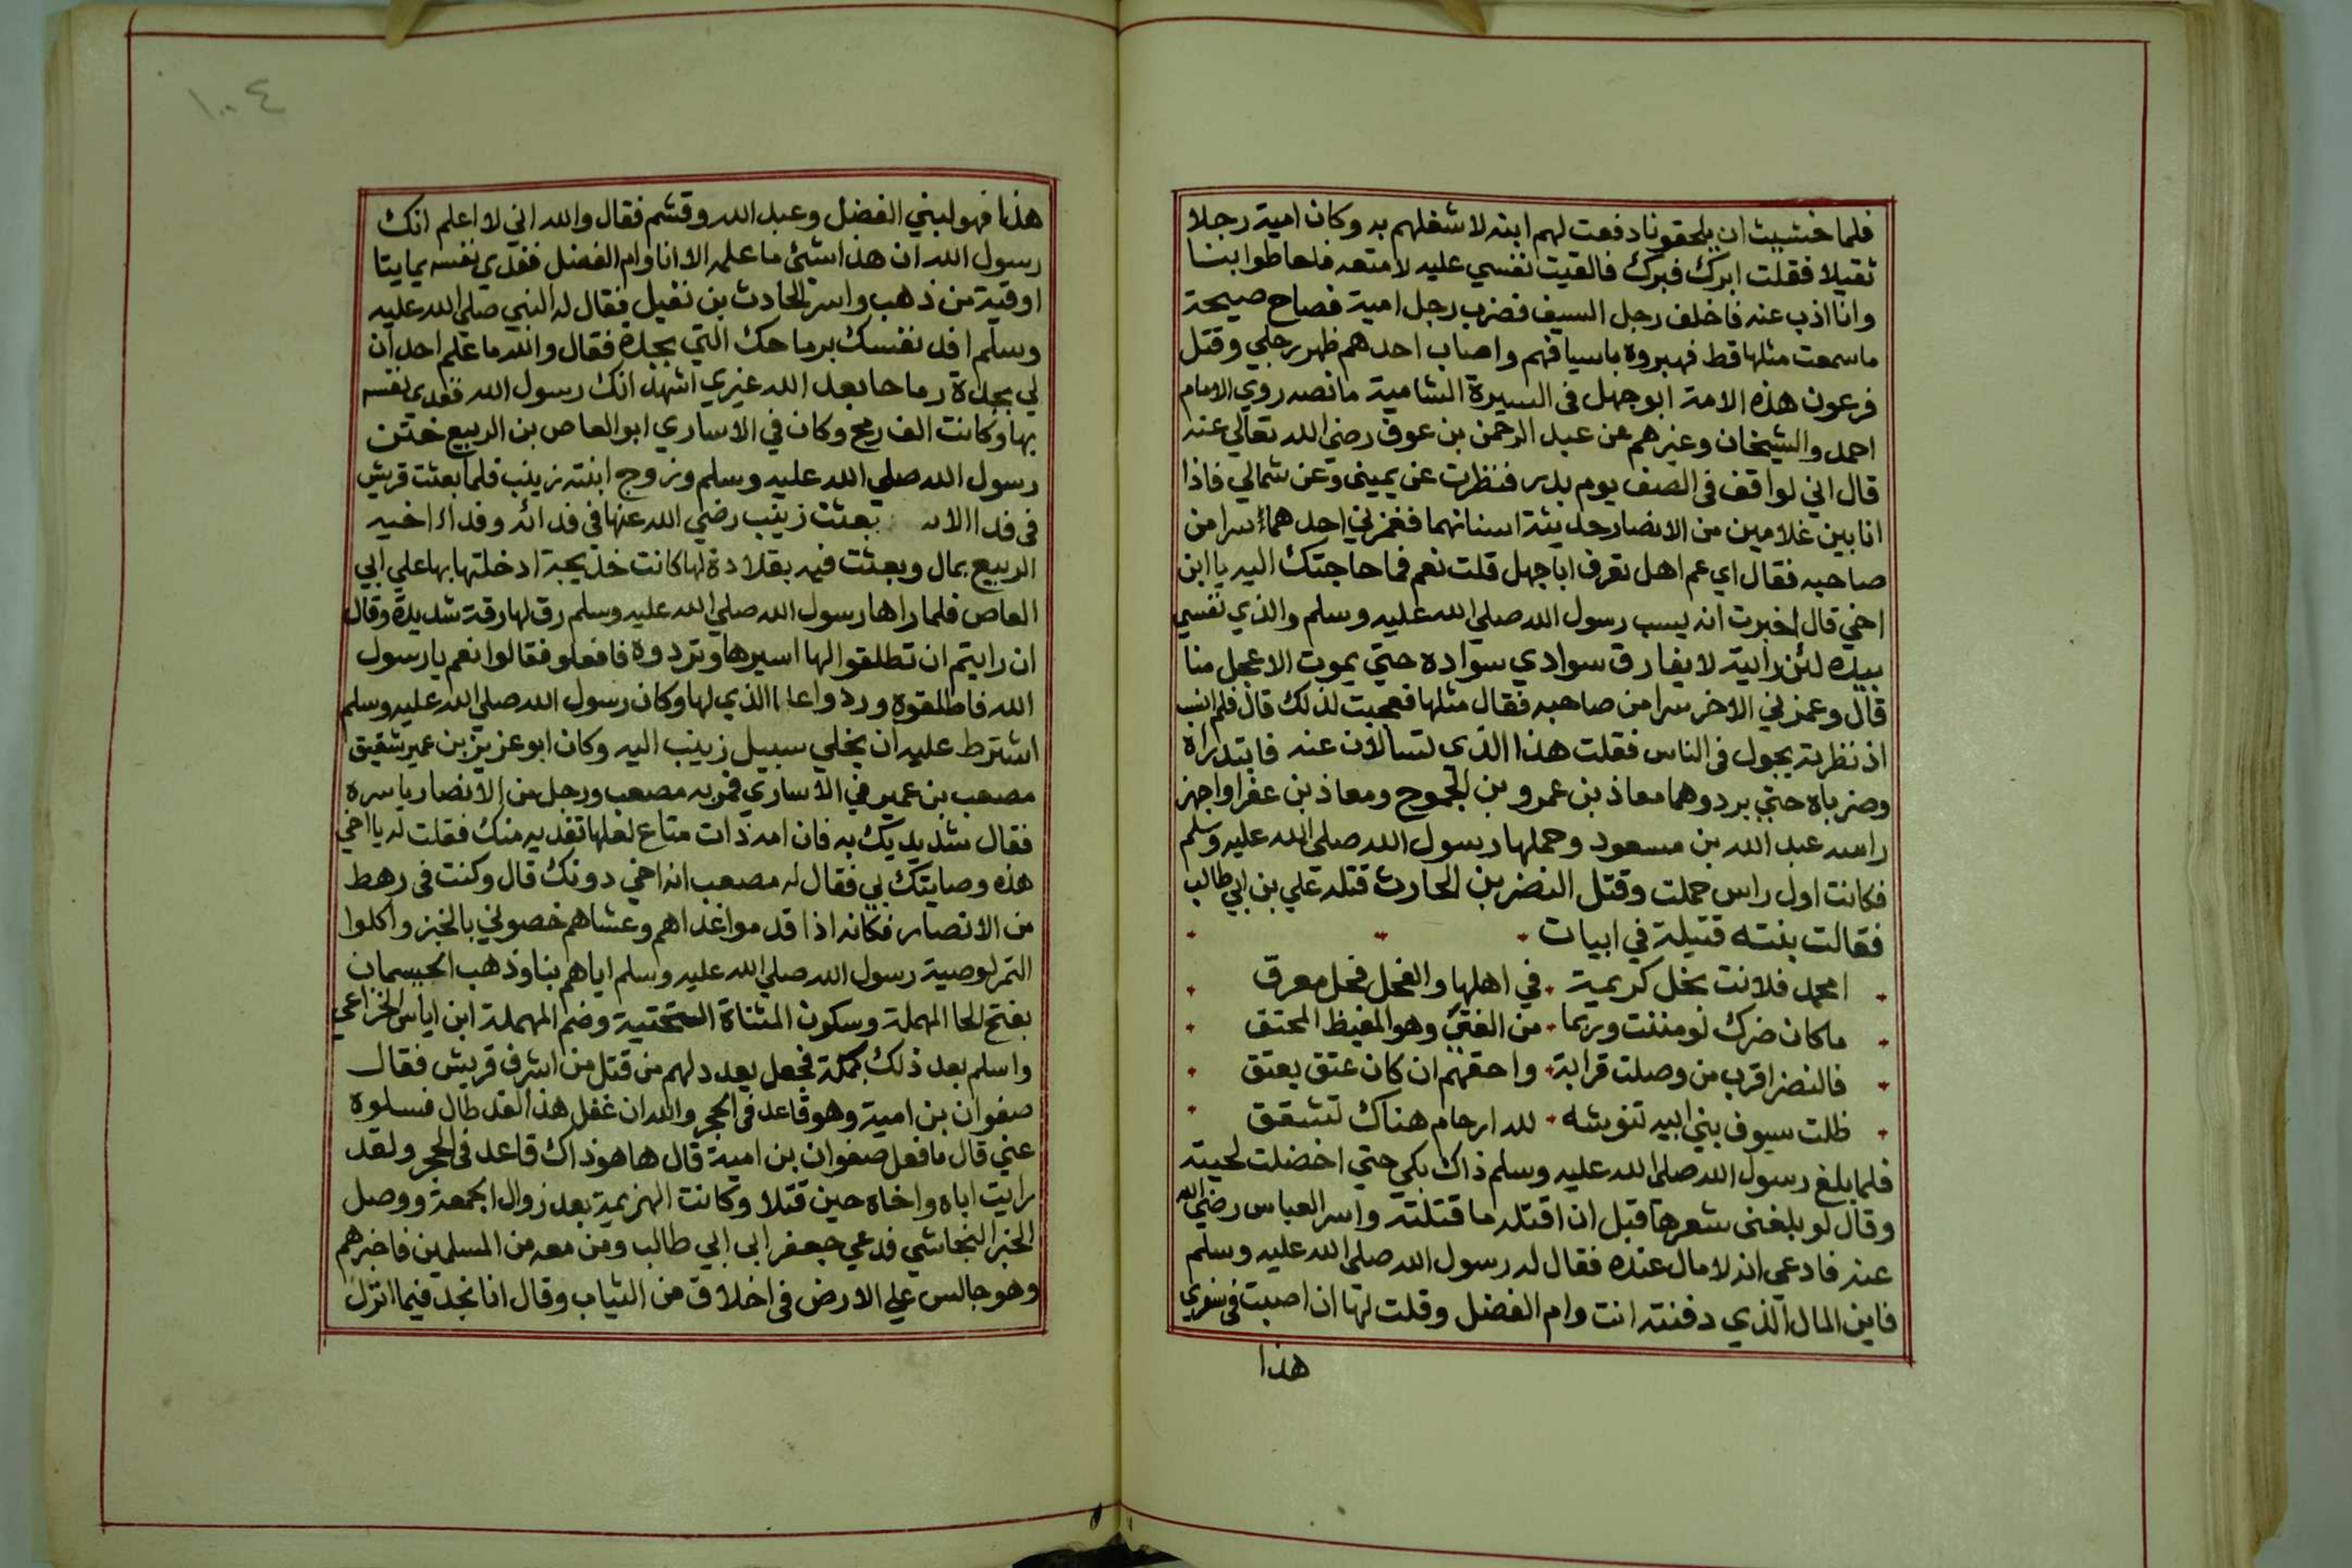 فلما خشيت ان يلحقونا دفعت لهم ابنه لاشغلهم به وكان امية رجلا
ثقيلا فقلت ابرك فبرك فالقيت نفسي عليه لامنعه فاحاطوا بنا
وانا اذب عنه فاخلف رجل السيف فضرب رجل امية فصاح صيحة
ما سمعت مثلها قط فهبروه باسيافهم واصاب احدهم ظهر رجلي وقتل
فرعون هذه الامة ابو جهل فى السيرة الشامية ما نصه روي الامام
احمد والشيخان وغيرهم عن عبد الرحمن بن عوف رضي الله تعالي عنه
قال اني لواقف فى الصف يوم بدر فنظرت عن يميني وعن شمالي فاذا
انا بين غلامين من الانصار حديثة اسنانهما فغمزني احدهما سرا من
صاحبه فقال اي عم اهل تعرف ابا جهل قلت نعم فما حاجتك اليه يا ابن
اخي قال اخبرت انه يسب رسول الله صلي الله عليه وسلم والذي نفسي
بيده لئن رايته لا يفارق سوادي سواده حتي يموت الاعجل منا
قال وغمزني الاخر سرا من صاحبه فقال مثلها فعجبت لذلك قال فلم انشب
اذ نظرته يجول فى الناس فقلت هذا الذي تسالان عنه فابتدراه
وضرباه حتي بردوهما معاذ بن عمرو بن الجموح ومعاذ بن عفرا واجهز
راسه عبد الله بن مسعود وحملها رسول الله صلي الله عليه وسلم
فكانت اول راس حملت وقتل النضر بن الحارث قتله علي بن ابي طالب
فقالت بنته قتيلة في ابيات
امحمد فلانت نجل كريمة في اهلها والفحل فحل معرق
ما كان ضرك لو مننت وربما من الفتي وهو المغيظ المحنق
فالنضر اقرب من وصلت قرابة واحقهم ان كان عتق يعتق
ظلت سيوف بني ابيه تنوشه لله ارحام هناك تشقق
فلما بلغ رسول الله صلي الله عليه وسلم ذاك بكي حتي اخضلت لحيته
وقال لو بلغني شعرها قبل ان اقتله ما قتلته واسر العباس رضي الله
عنه فادعي انه لا مال عنده فقال له رسول الله صلي الله عليه وسلم
فاين المال الذي دفنته انت وام الفضل وقلت لها ان اصبت فى سفري
هذا
١٠٠٤
هذا فهو لبني الفضل وعبد الله وقثم فقال والله اني لا اعلم انك
رسول الله ان هذا شئ ما علمه الا انا وام الفضل ففدي نفسه بمايتا
اوقية من ذهب واسر الحارث بن نفيل فقال له النبي صلي الله عليه
وسلم افد نفسك برماحك التي بجدة فقال والله ما علم احد ان
لي بجدة رماحا بعد الله غيري اشهد انك رسول الله ففدي نفسه
بها وكانت الف رمح وكان في الاساري ابو العاص بن الربيع ختن
رسول الله صلي الله عليه وسلم وزوج ابنته زينب فلما بعثت قريش
فى فدا الا بعثت زينب رضي الله عنها فى فدائه وفداء اخيه
الربيع بمال وبعثت فيه بقلادة لها كانت خديجة ادخلتها بها علي ابي
العاص فلما راها رسول الله صلي الله عليه وسلم رق لها رقة شديدة وقال
ان رايتم ان تطلقوا لها اسيرها وتردوه فافعلو فقالوا نعم يا رسول
الله فاطلقوه وردوا الذي لها وكان رسول الله صلي الله عليه وسلم
اشترط عليه ان يخلي سبيل زينب اليه وكان ابو عزيز بن عمير شقيق
مصعب بن عمير في الاساري فمر به مصعب ورجل من الانصار ياسره
فقال شد يديك به فان امه ذات متاع لعلها تفديه منك فقلت له يا اخي
هذه وصايتك بي فقال له مصعب انه اخي دونك قال وكنت فى رهط
من الانصار فكانه اذا قدموا غداهم وعشاهم خصوني بالخبز واكلوا
التمر لوصية رسول الله صلي الله عليه وسلم اياهم بنا وذهب الحيسمان
بفتح الحا المهملة وسكون المثناة التحتية وضم المهملة ابن اياس الخزاعي
واسلم بعد ذلك بمكة فجعل يعدد لهم من قتل من اشرف قريش فقال
صفوان بن امية وهو قاعد فى الحجر والله ان غفل هذا لقد طال فسلوه
عني قال ما فعل صفوان بن امية قال ها هو ذاك قاعد فى الحجر ولقد
رايت اباه واخاه حين قتلا وكانت الهزيمة بعد زوال الجمعة ووصل
الخبر النجاشي فدعي جعفر ابي ابي طالب ومن معه من المسلمين فاخبرهم
وهو جالس علي الارض فى اخلاق من الثياب وقال انا نجد فيما انزل